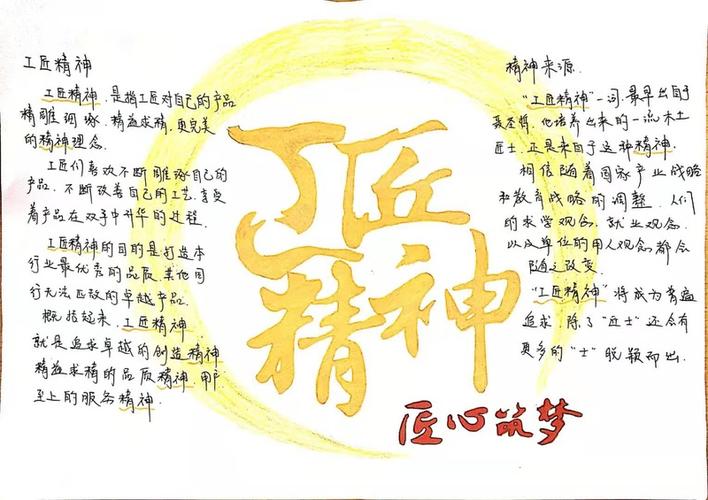 工匠精神
工匠精神，是指工匠对自己的产品
精雕细琢，精益求精，更完美
的精神理念.
工匠们喜欢不断雕琢自己的
产品，不断改善自己的工艺，享受
着产品在双手中升华的过程.
工匠精神的目的是打造本
行业最优秀的品质，其他同
行无法匹敌的卓越产品.
概括起来，工匠精神
就是追求卓越的创造精神
精益求精的品质精神，用户
至上的服务精神.
工匠
精神
匠心筑梦
精神来源.
"工匠精神"一词，最早出自于
聂圣哲，他培养出来的一流木工
匠士，正是来自于这种精神.
相信随着国家产业战略
和教育战略的调整，人们
的求学观念，就业观念，
以及单位的用人观念都会
随之改变.
"工匠精神"将成为普遍
追求，除了"匠士"还会有
更多的"士"脱颖而出.